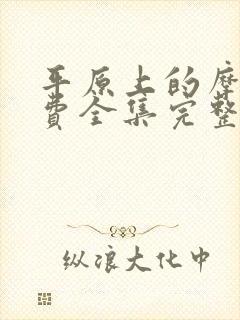 平原上的摩
费全集完整
纵浪大化中